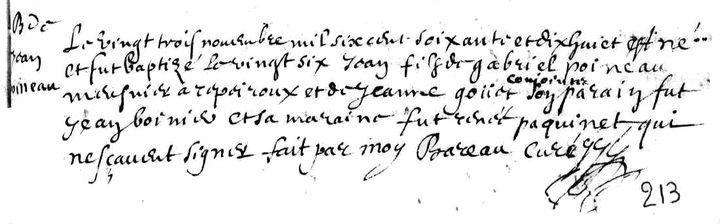 B de
Jean
poineau
Le vingt trois novembre mil six cent soixante et dix huict est né
et fut baptizé le vingt six Jean filz de gabriel poineau
meusnier a repeiroux et de Jeanne goiiet conjoincts son parain fut
Jean boinier et sa maraine fut renée paquinet qui
ne sçavent signer fait par moy Bareau curé
213